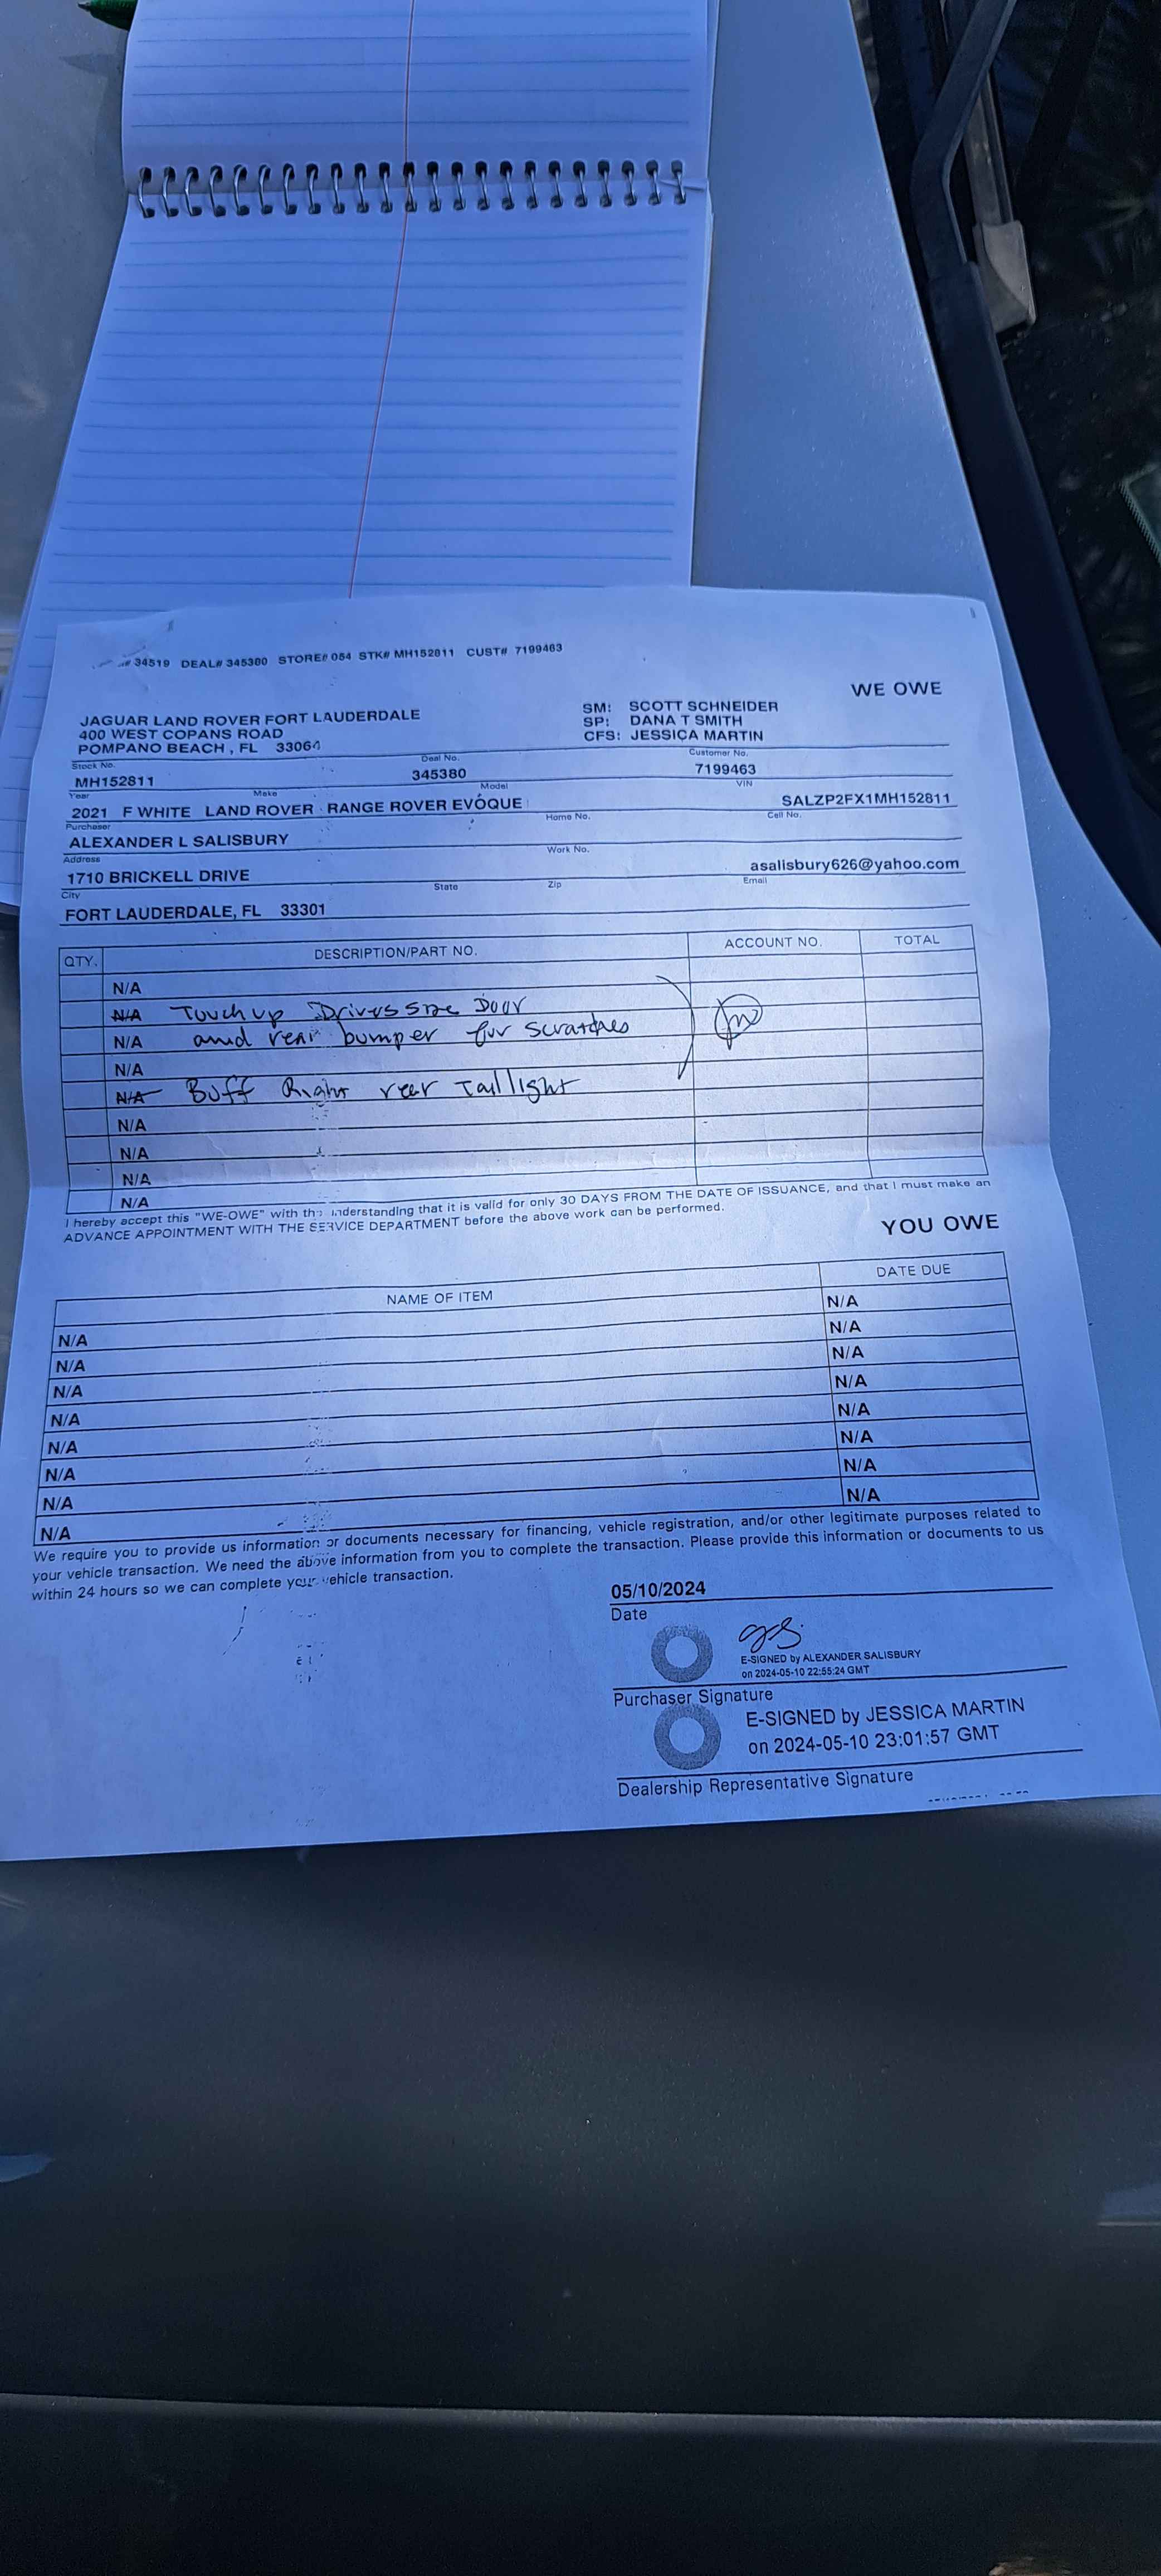 # 34519 DEAL# 345380 STORE# 054 STK# MH152811 CUST# 7199463
WE OWE
JAGUAR LAND ROVER FORT LAUDERDALE
400 WEST COPANS ROAD
POMPANO BEACH , FL 33064
SM: SCOTT SCHNEIDER
SP: DANA T SMITH
CFS: JESSICA MARTIN
Stock No. Deal No. Customer No.
MH152811 345380 7199463
Year Make Model VIN
2021 F WHITE LAND ROVER RANGE ROVER EVOQUE SALZP2FX1MH152811
Purchaser Home No. Cell No.
ALEXANDER L SALISBURY
Address Work No.
1710 BRICKELL DRIVE asalisbury626@yahoo.com
City State Zip Email
FORT LAUDERDALE, FL 33301
QTY. DESCRIPTION/PART NO. ACCOUNT NO. TOTAL
N/A
N/A Touch up Drivers Side Door
N/A and rear bumper for scratches
N/A
N/A Buff Right rear Taillight
N/A
N/A
N/A
N/A
I hereby accept this "WE-OWE" with the understanding that it is valid for only 30 DAYS FROM THE DATE OF ISSUANCE, and that I must make an
ADVANCE APPOINTMENT WITH THE SERVICE DEPARTMENT before the above work can be performed.
YOU OWE
NAME OF ITEM DATE DUE
N/A N/A
N/A N/A
N/A N/A
N/A N/A
N/A N/A
N/A N/A
N/A N/A
N/A N/A
We require you to provide us information or documents necessary for financing, vehicle registration, and/or other legitimate purposes related to
your vehicle transaction. We need the above information from you to complete the transaction. Please provide this information or documents to us
within 24 hours so we can complete your vehicle transaction.
05/10/2024
Date
E-SIGNED by ALEXANDER SALISBURY
on 2024-05-10 22:55:24 GMT
Purchaser Signature
E-SIGNED by JESSICA MARTIN
on 2024-05-10 23:01:57 GMT
Dealership Representative Signature